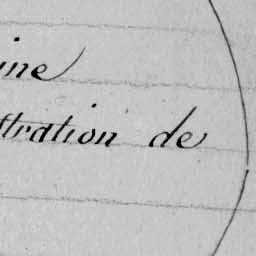 ine
stration de